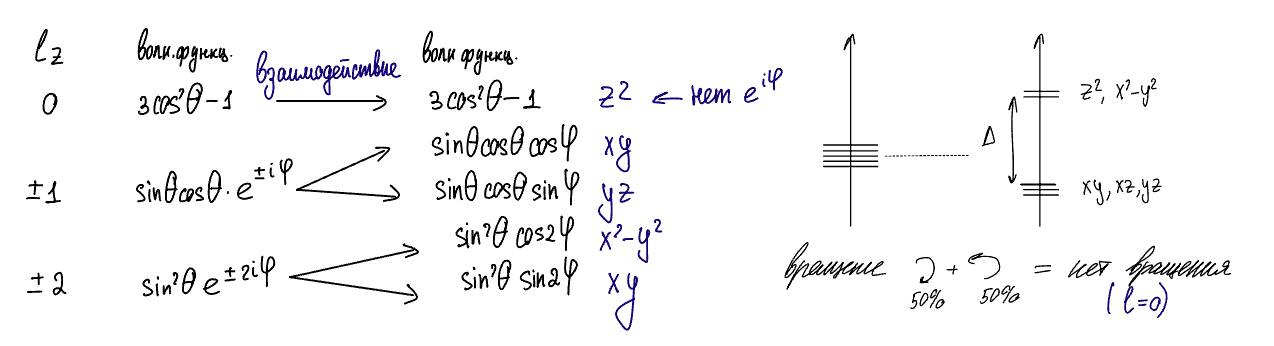 lz волн.функц. взаимодействие волн функц.
0 3cos²θ-1 → 3cos²θ-1 z² ← нет e^{iφ}
sinθcosθcosφ xy
±1 sinθcosθ·e^{±iφ} sinθcosθsinφ yz
sin²θcos2φ x²-y²
±2 sin²θe^{±2iφ} sin²θsin2φ xy
z², x²-y²
Δ
xy, xz, yz
вращение + = нет вращения
50% 50% (l=0)